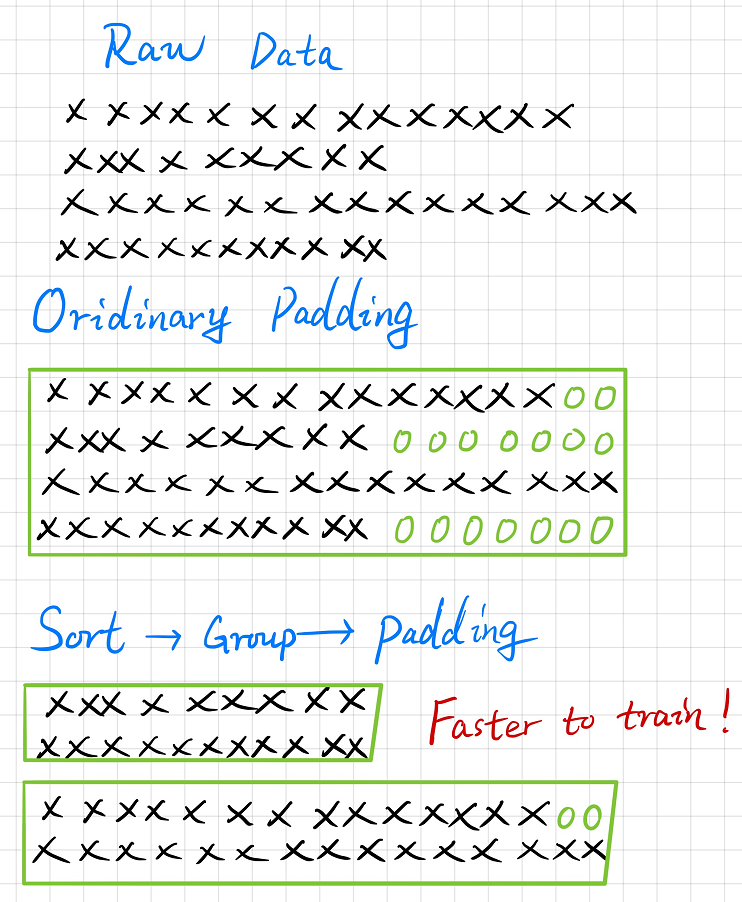 Raw Data
x x x x x x x x x x x x x x
x x x x x x x x x
x x x x x x x x x x x x x x x
x x x x x x x x x x x
Oridinary Padding
x x x x x x x x x x x x x x 0 0
x x x x x x x x x 0 0 0 0 0 0 0
x x x x x x x x x x x x x x x
x x x x x x x x x x x 0 0 0 0 0 0 0
Sort → Group → padding
x x x x x x x x x
x x x x x x x x x x x
Faster to train!
x x x x x x x x x x x x x x 0 0
x x x x x x x x x x x x x x x